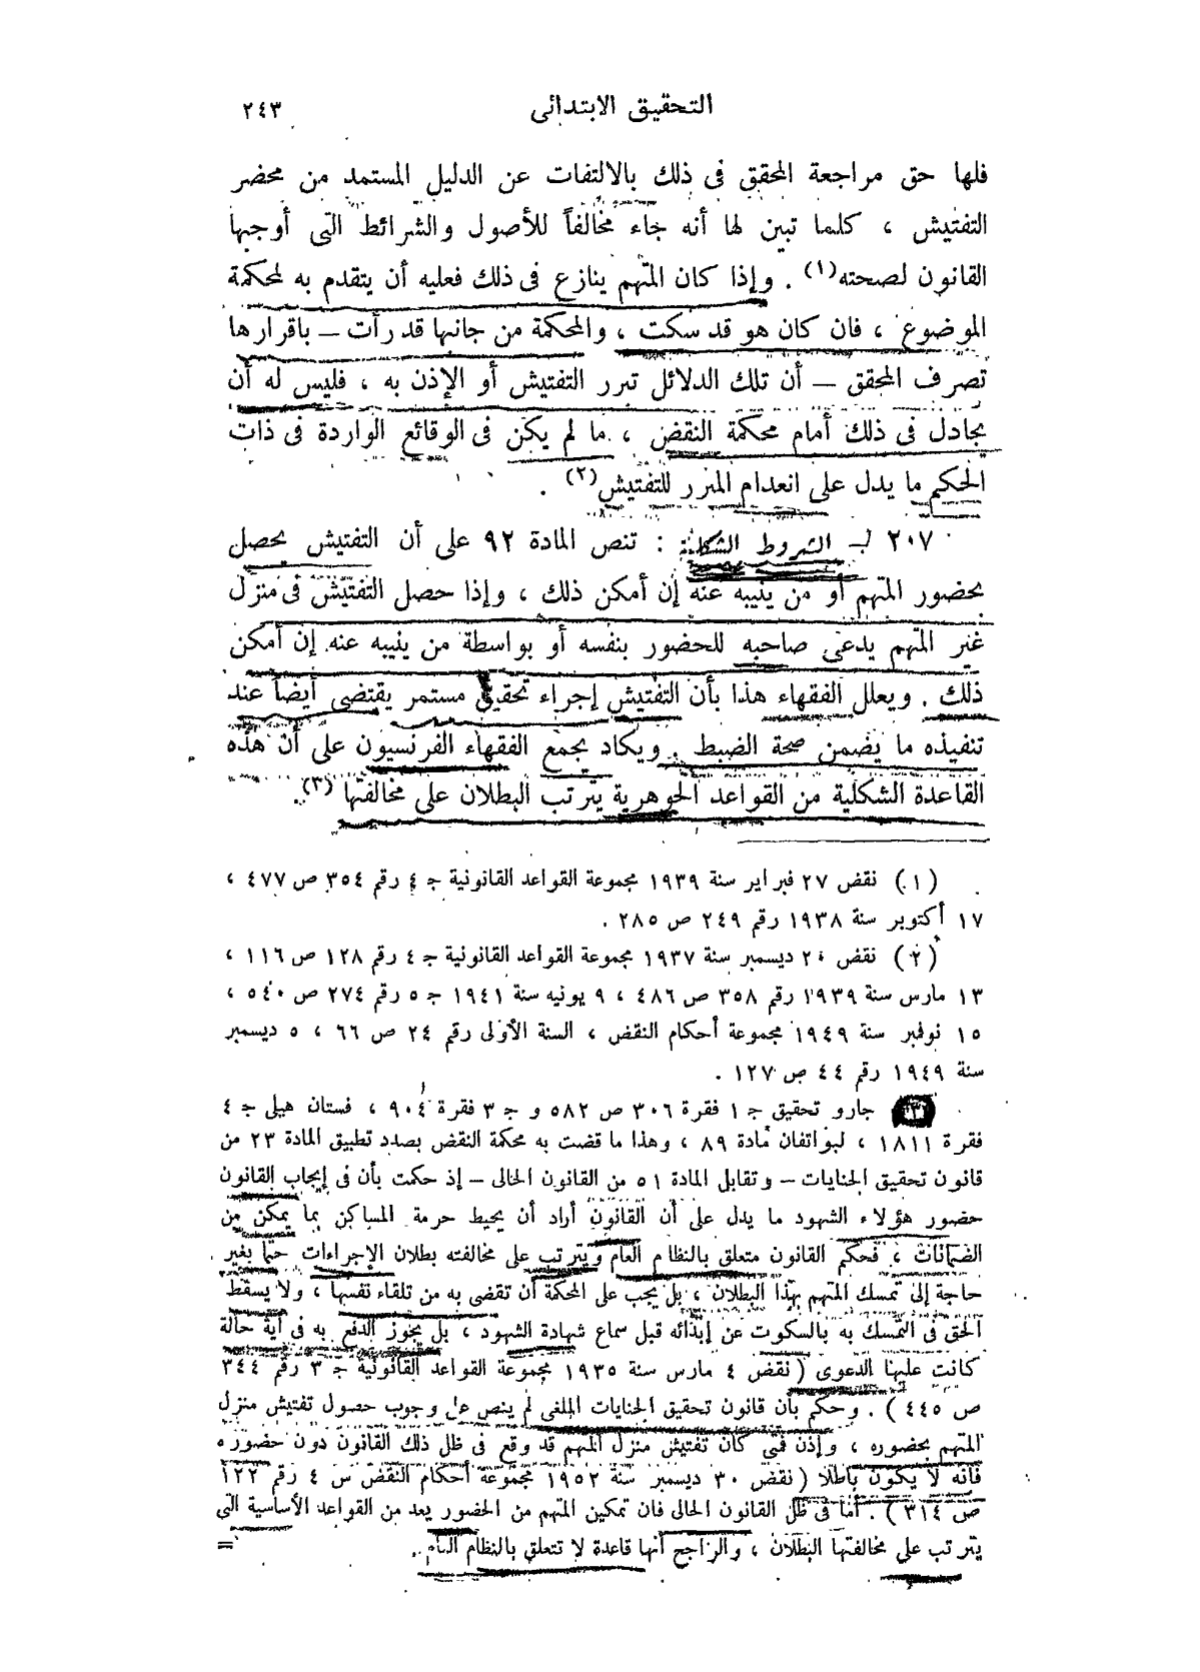 التحقيق الابتدائى ٢٤٣
فلها حق مراجعة المحقق فى ذلك بالالتفات عن الدليل المستمد من محضر
التفتيش ، كلما تبين لها أنه جاء مخالفاً للأصول والشرائط التى أوجبها
القانون لصحته (١) . وإذا كان المتهم ينازع فى ذلك فعليه أن يتقدم به لمحكمة
الموضوع ، فان كان هو قد سكت ، والمحكمة من جانبها قد رأت – باقرارها
تصرف المحقق – أن تلك الدلائل تبرر التفتيش أو الإذن به ، فليس له أن
يجادل فى ذلك أمام محكمة النقض ، ما لم يكن فى الوقائع الواردة فى ذات
الحكم ما يدل على انعدام المبرر للتفتيش (٢) .
٢٠٧ – الشروط الشكلية : تنص المادة ٩٢ على أن التفتيش يحصل
بحضور المتهم أو من ينيبه عنه إن أمكن ذلك ، وإذا حصل التفتيش فى منزل
غير المتهم يدعى صاحبه للحضور بنفسه أو بواسطة من ينيبه عنه إن أمكن
ذلك . ويعلل الفقهاء هذا بأن التفتيش إجراء تحقيق مستمر يقتضى أيضاً عند
تنفيذه ما يضمن صحة الضبط . ويكاد يجمع الفقهاء الفرنسيون على أن هذه
القاعدة الشكلية من القواعد الجوهرية يترتب البطلان على مخالفتها (٣) .
(١) نقض ٢٧ فبراير سنة ١٩٣٩ مجموعة القواعد القانونية ج ٤ رقم ٣٥٤ ص ٤٧٧ ،
١٧ أكتوبر سنة ١٩٣٨ رقم ٢٤٩ ص ٢٨٥ .
(٢) نقض ٢٠ ديسمبر سنة ١٩٣٧ مجموعة القواعد القانونية ج ٤ رقم ١٢٨ ص ١١٦ ،
١٣ مارس سنة ١٩٣٩ رقم ٣٥٨ ص ٤٨٦ ، ٩ يونيه سنة ١٩٤١ ج ٥ رقم ٢٧٤ ص ٥٤٠ ،
١٥ نوفمبر سنة ١٩٤٩ مجموعة أحكام النقض ، السنة الأولى رقم ٢٤ ص ٦٦ ، ٥ ديسمبر
سنة ١٩٤٩ رقم ٤٤ ص ١٢٧ .
(٣) جارو تحقيق ج ١ فقرة ٣٠٦ ص ٥٨٢ و ج ٣ فقرة ٩٠٤ ، فستان هيلى ج ٤
فقرة ١٨١١ ، لبواتفان مادة ٨٩ ، وهذا ما قضت به محكمة النقض بصدد تطبيق المادة ٢٣ من
قانون تحقيق الجنايات – وتقابل المادة ٥١ من القانون الحالى – إذ حكمت بأن فى إيجاب القانون
حضور هؤلاء الشهود ما يدل على أن القانون أراد أن يحيط حرمة المساكن بما يمكن من
الضمانات ، فحكم القانون متعلق بالنظام العام ويترتب على مخالفته بطلان الإجراءات حتما بغير
حاجة إلى تمسك المتهم بهذا البطلان ، بل يجب على المحكمة أن تقضى به من تلقاء نفسها ، ولا يسقط
الحق فى التمسك به بالسكوت عن إبدائه قبل سماع شهادة الشهود ، بل يجوز الدفع به فى أية حالة
كانت عليها الدعوى ( نقض ٤ مارس سنة ١٩٣٥ مجموعة القواعد القانونية ج ٣ رقم ٣٤٤
ص ٤٤٥ ) . وحكم بأن قانون تحقيق الجنايات الملغى لم ينص على وجوب حصول تفتيش منزل
المتهم بحضوره ، وإذن فمتى كان تفتيش منزل المتهم قد وقع فى ظل ذلك القانون دون حضوره
فانه لا يكون باطلا ( نقض ٣٠ ديسمبر سنة ١٩٥٢ مجموعة أحكام النقض س ٤ رقم ١٢٢
ص ٣١٤ ) . أما فى ظل القانون الحالى فان تمكين المتهم من الحضور يعد من القواعد الأساسية التى
يترتب على مخالفتها البطلان ، والراجح أنها قاعدة لا تتعلق بالنظام العام . =